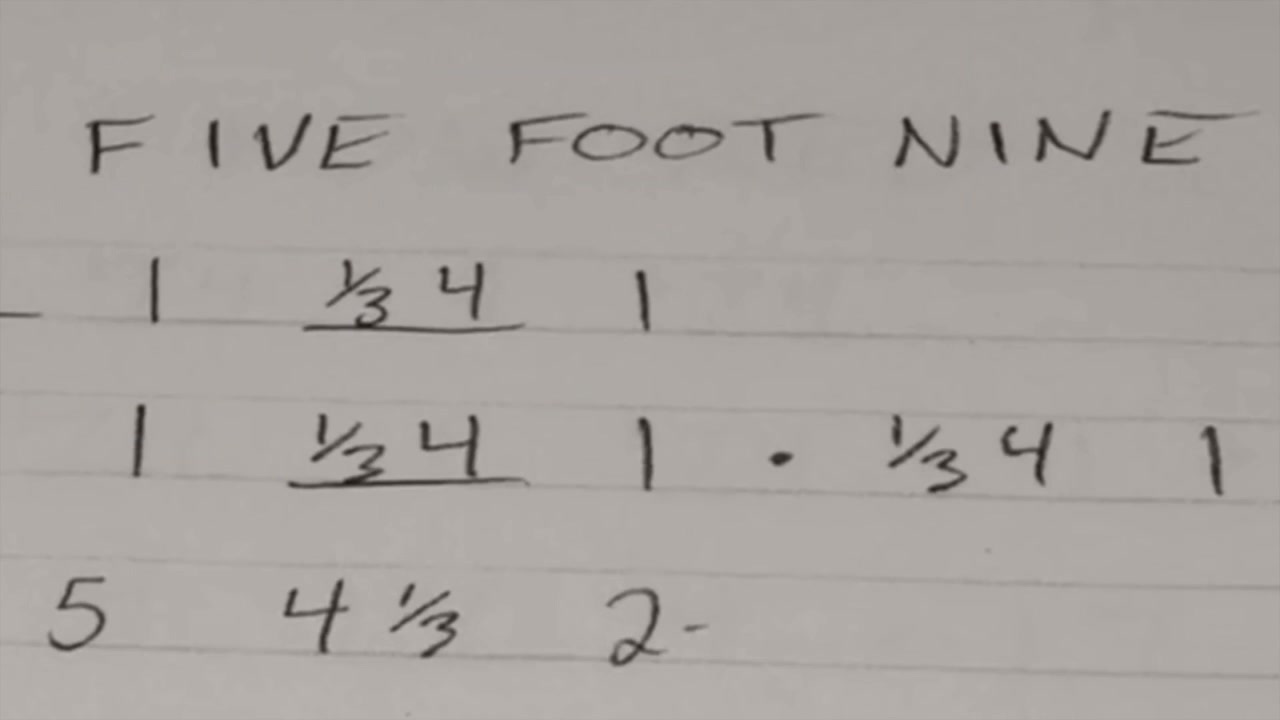 FIVE FOOT NINE
1 1/3 4 1
1 1/3 4 1 • 1/3 4 1
5 4 1/3 2-